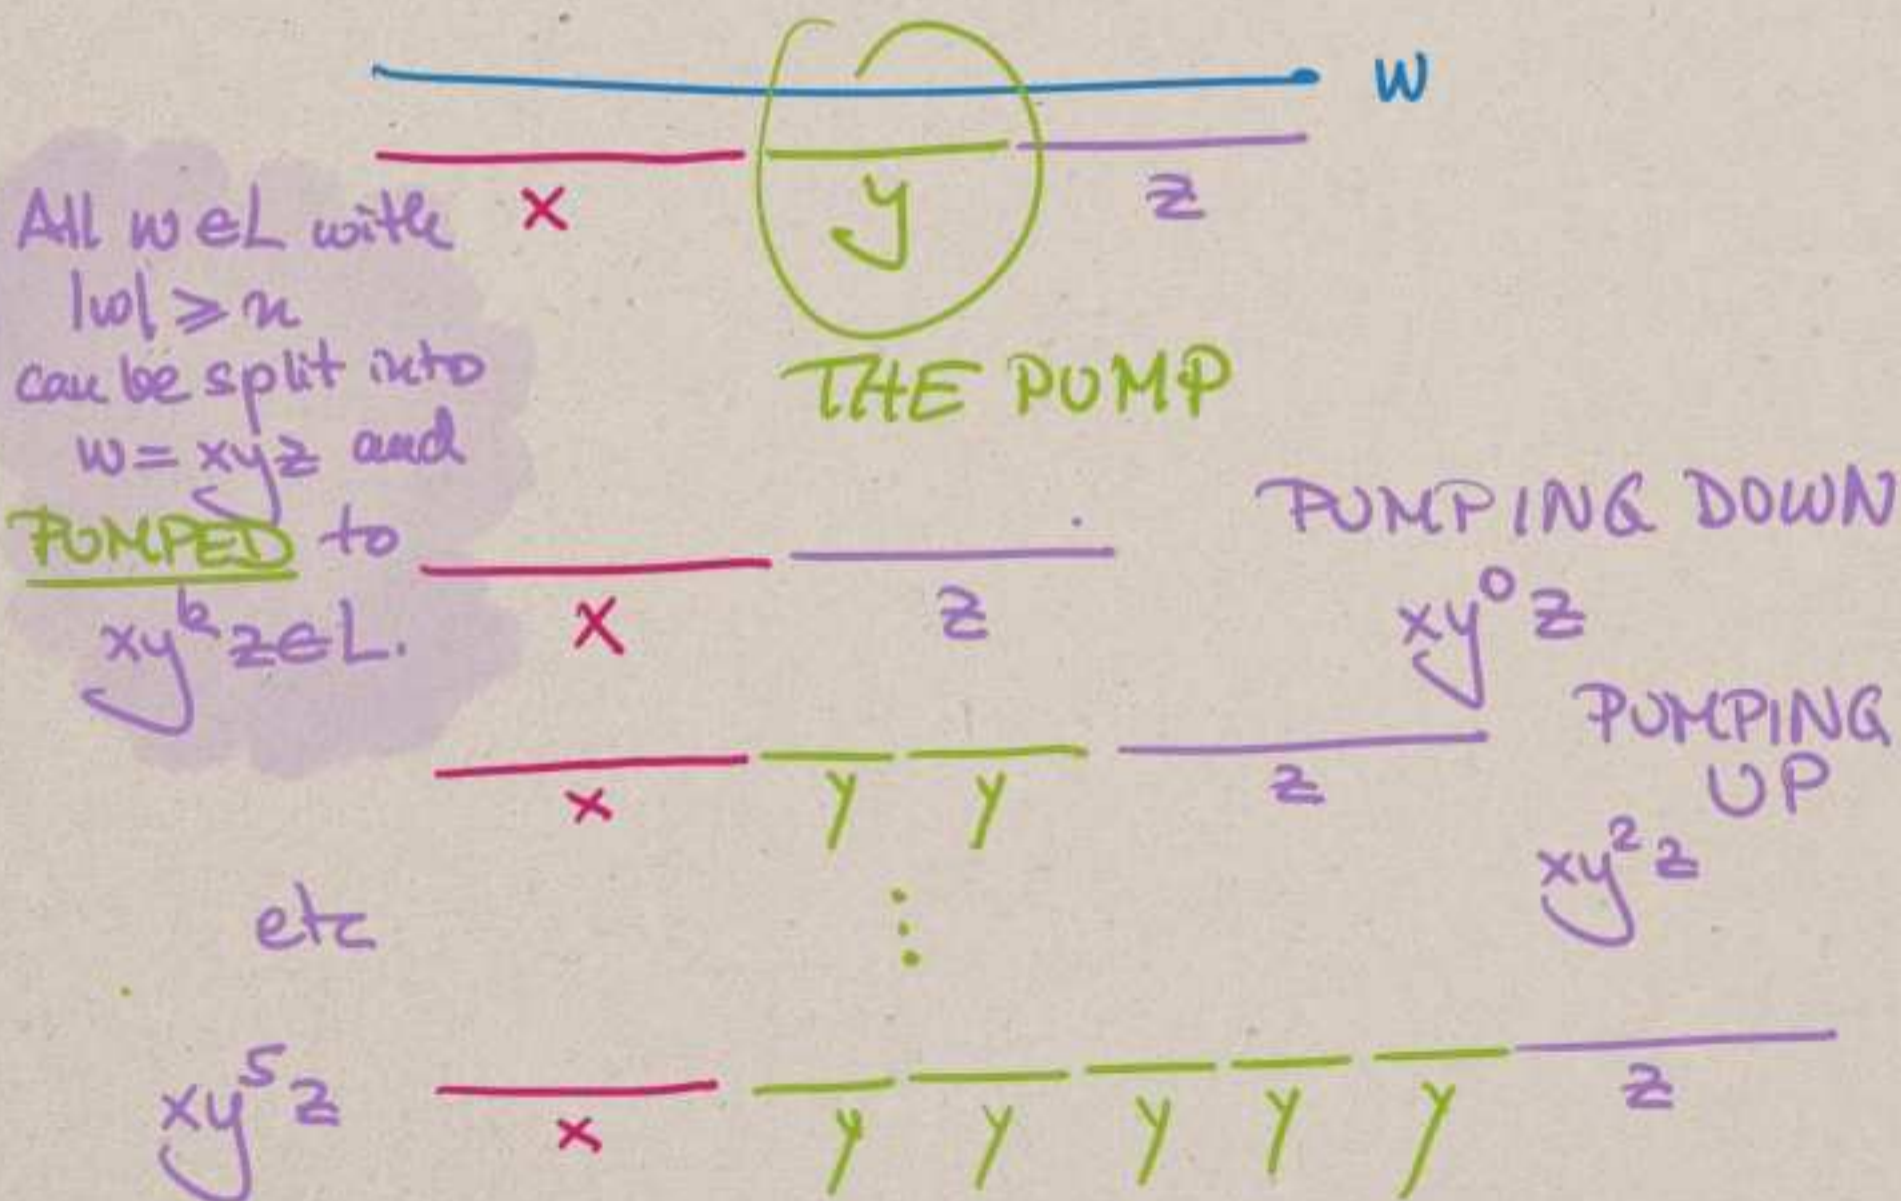 w
x y z
All w∈L with
|w| ⩾ n
can be split into
w = xyz and
PUMPED to
xyᵏz∈L.
THE PUMP
PUMPING DOWN
x z
xy⁰z
PUMPING
UP
x y y z
xy²z
etc
⋮
xy⁵z
x y y y y y z